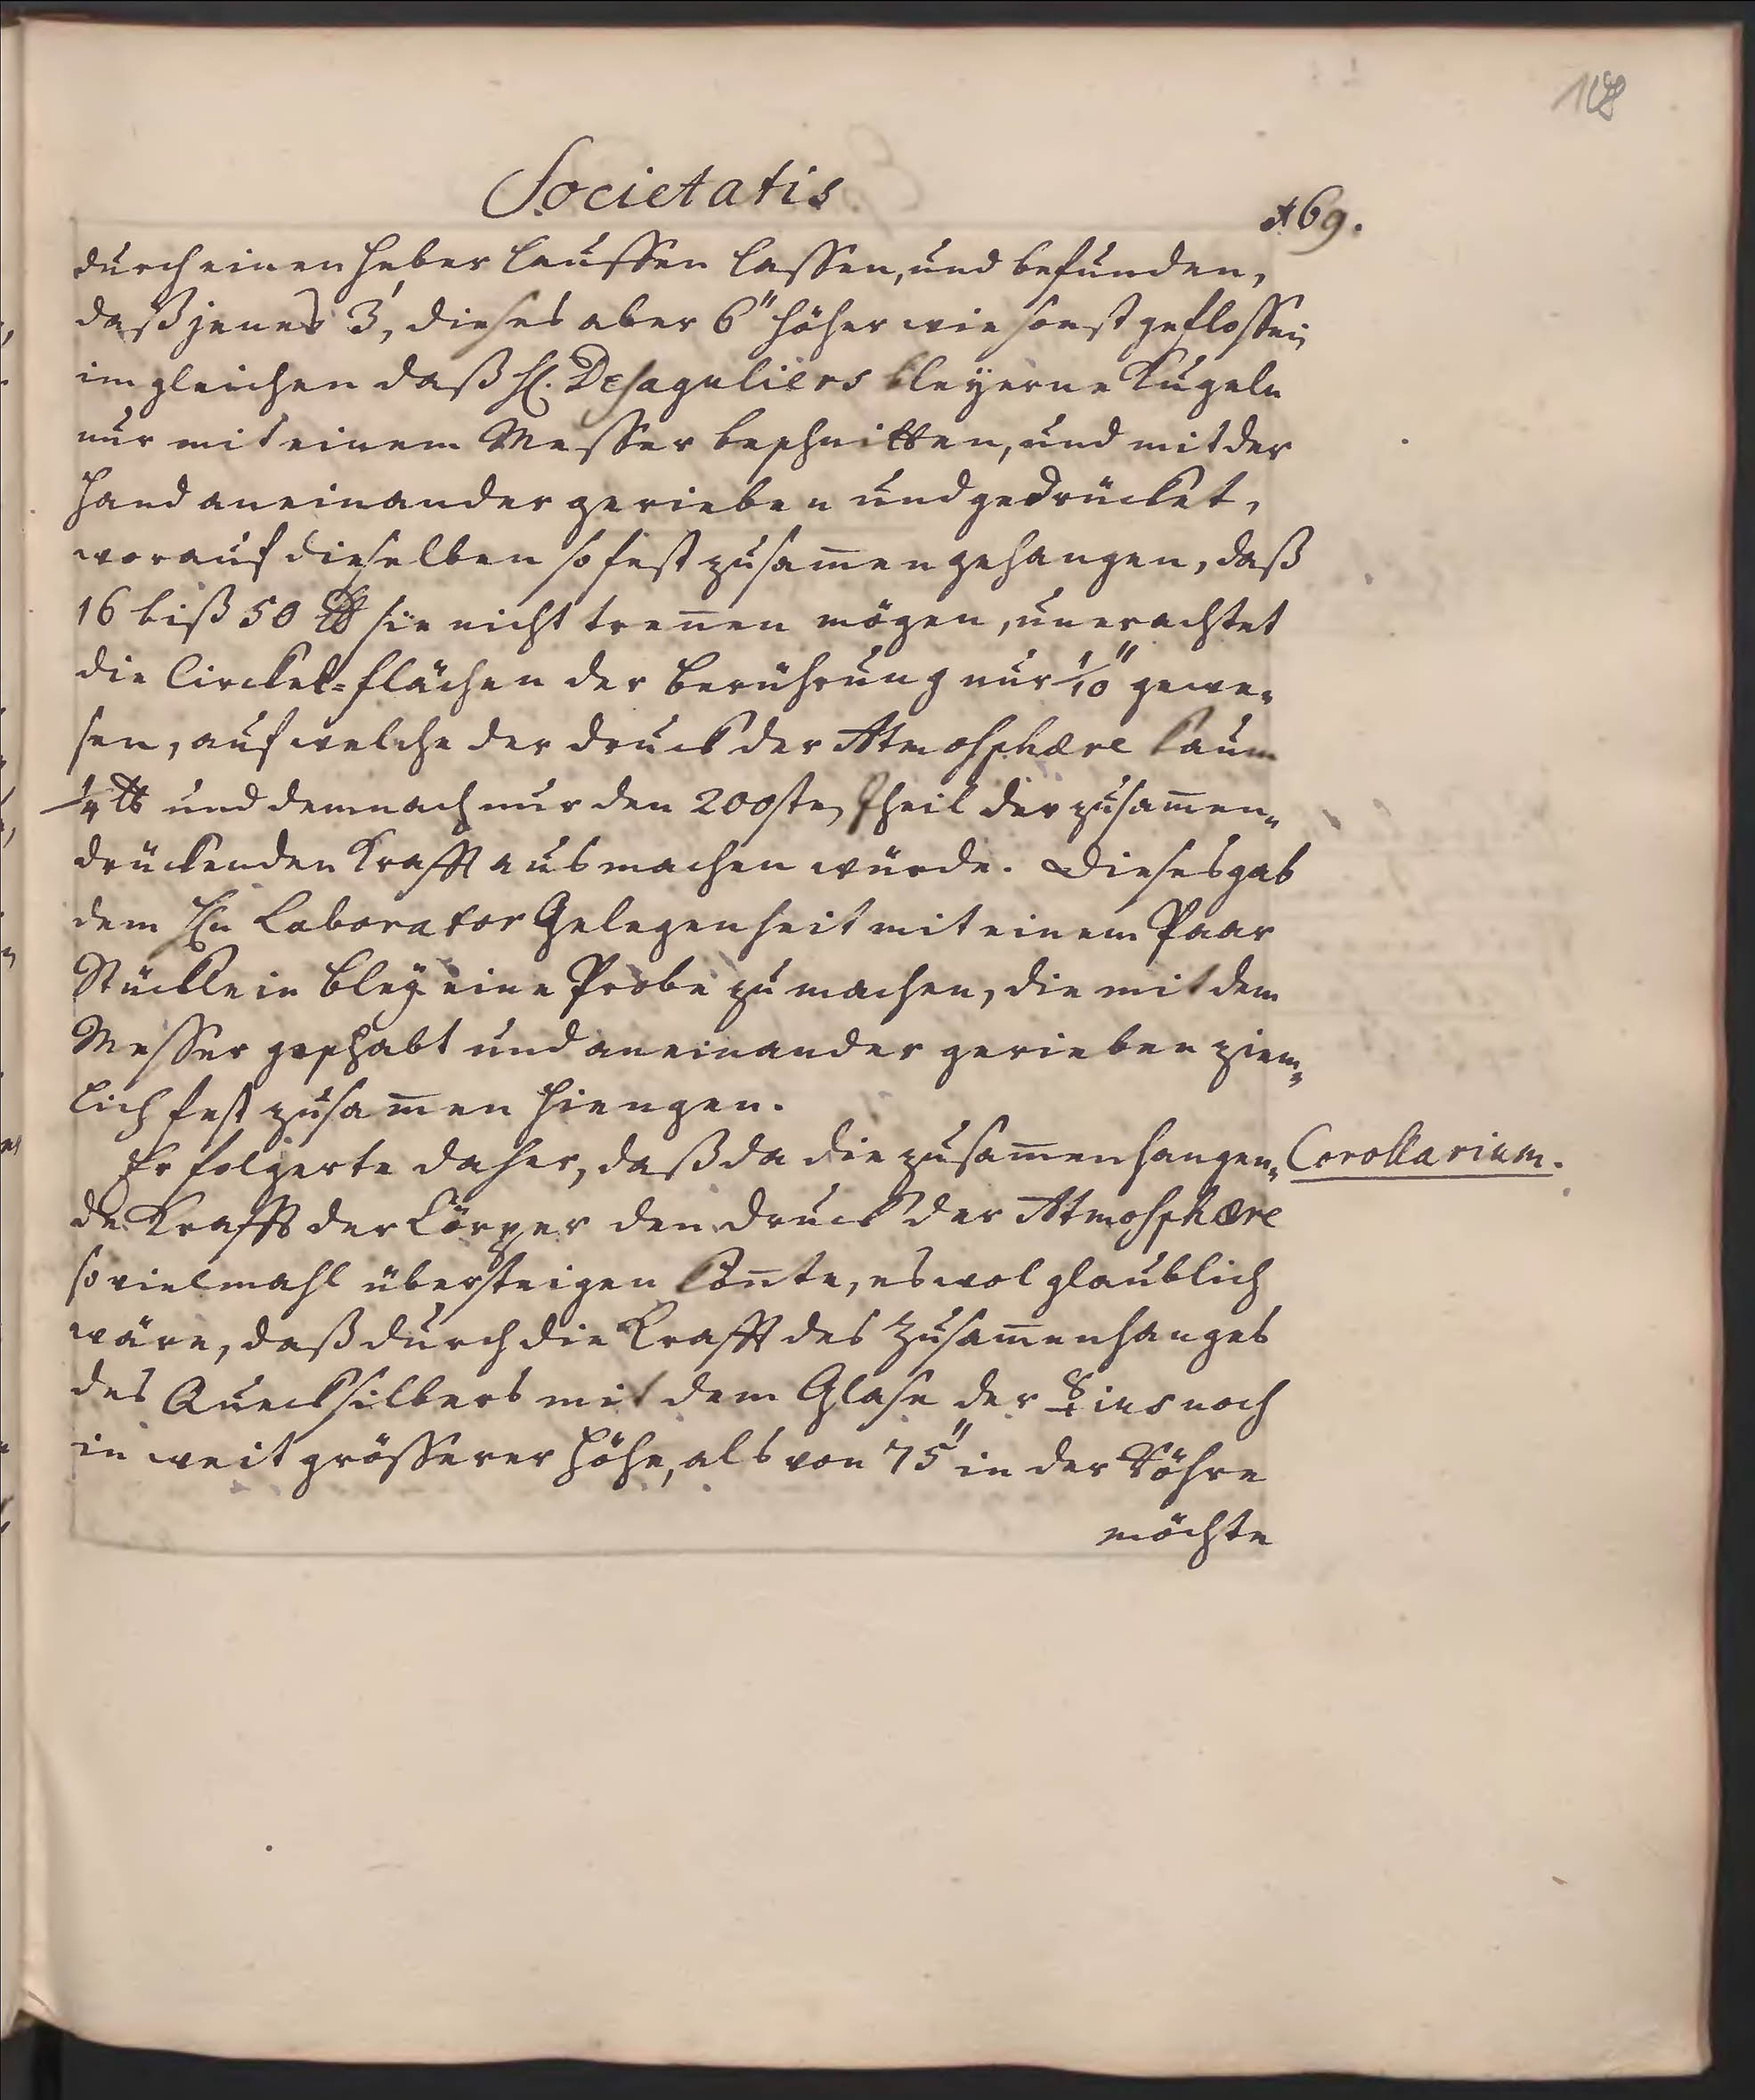 Societatis
169.
durch einen heber lauffen lassen, und befunden,
daß jenes 3', dieses aber 6" höher wie sonst geflossen;
imgleichen daß H. Desaguliers bleyerne Kugeln
nur mit einem Messer beschnitten, und mit der
Hand aneinander gerieben und gedrücket,
worauf dieselben so fest zusam̅en gehangen, daß
16 biß 50 ℔ sie nicht tren̅en mögen, unerachtet
die Circkel=flächen der Berührung nur 1/10" gewe=
sen, auf welche der druck der Atmosphære kaum
1/4 ℔ und demnach nur den 200sten Theil der zusam̅en=
drückenden Krafft ausmachen würde. Dieses gab
dem Hn Laborator Gelegenheit mit einem Paar
Stücklein Bley eine Probe zu machen, die mit dem
Messer geschabt und aneinander gerieben ziem=
lich fest zusam̅en hiengen.
Er folgerte daher, daß da die zusam̅enhangen=
Corollarium.
de Krafft der Cörper den druck der Atmosphære
so vielmahl übersteigen kön̅te, es wol glaublich
wäre, daß durch die Krafft des Zusam̅enhanges
des Quecksilbers mit dem Glase der ☿ius noch
in weit grösserer Höhe, als von 75" in der Röhre
möchte